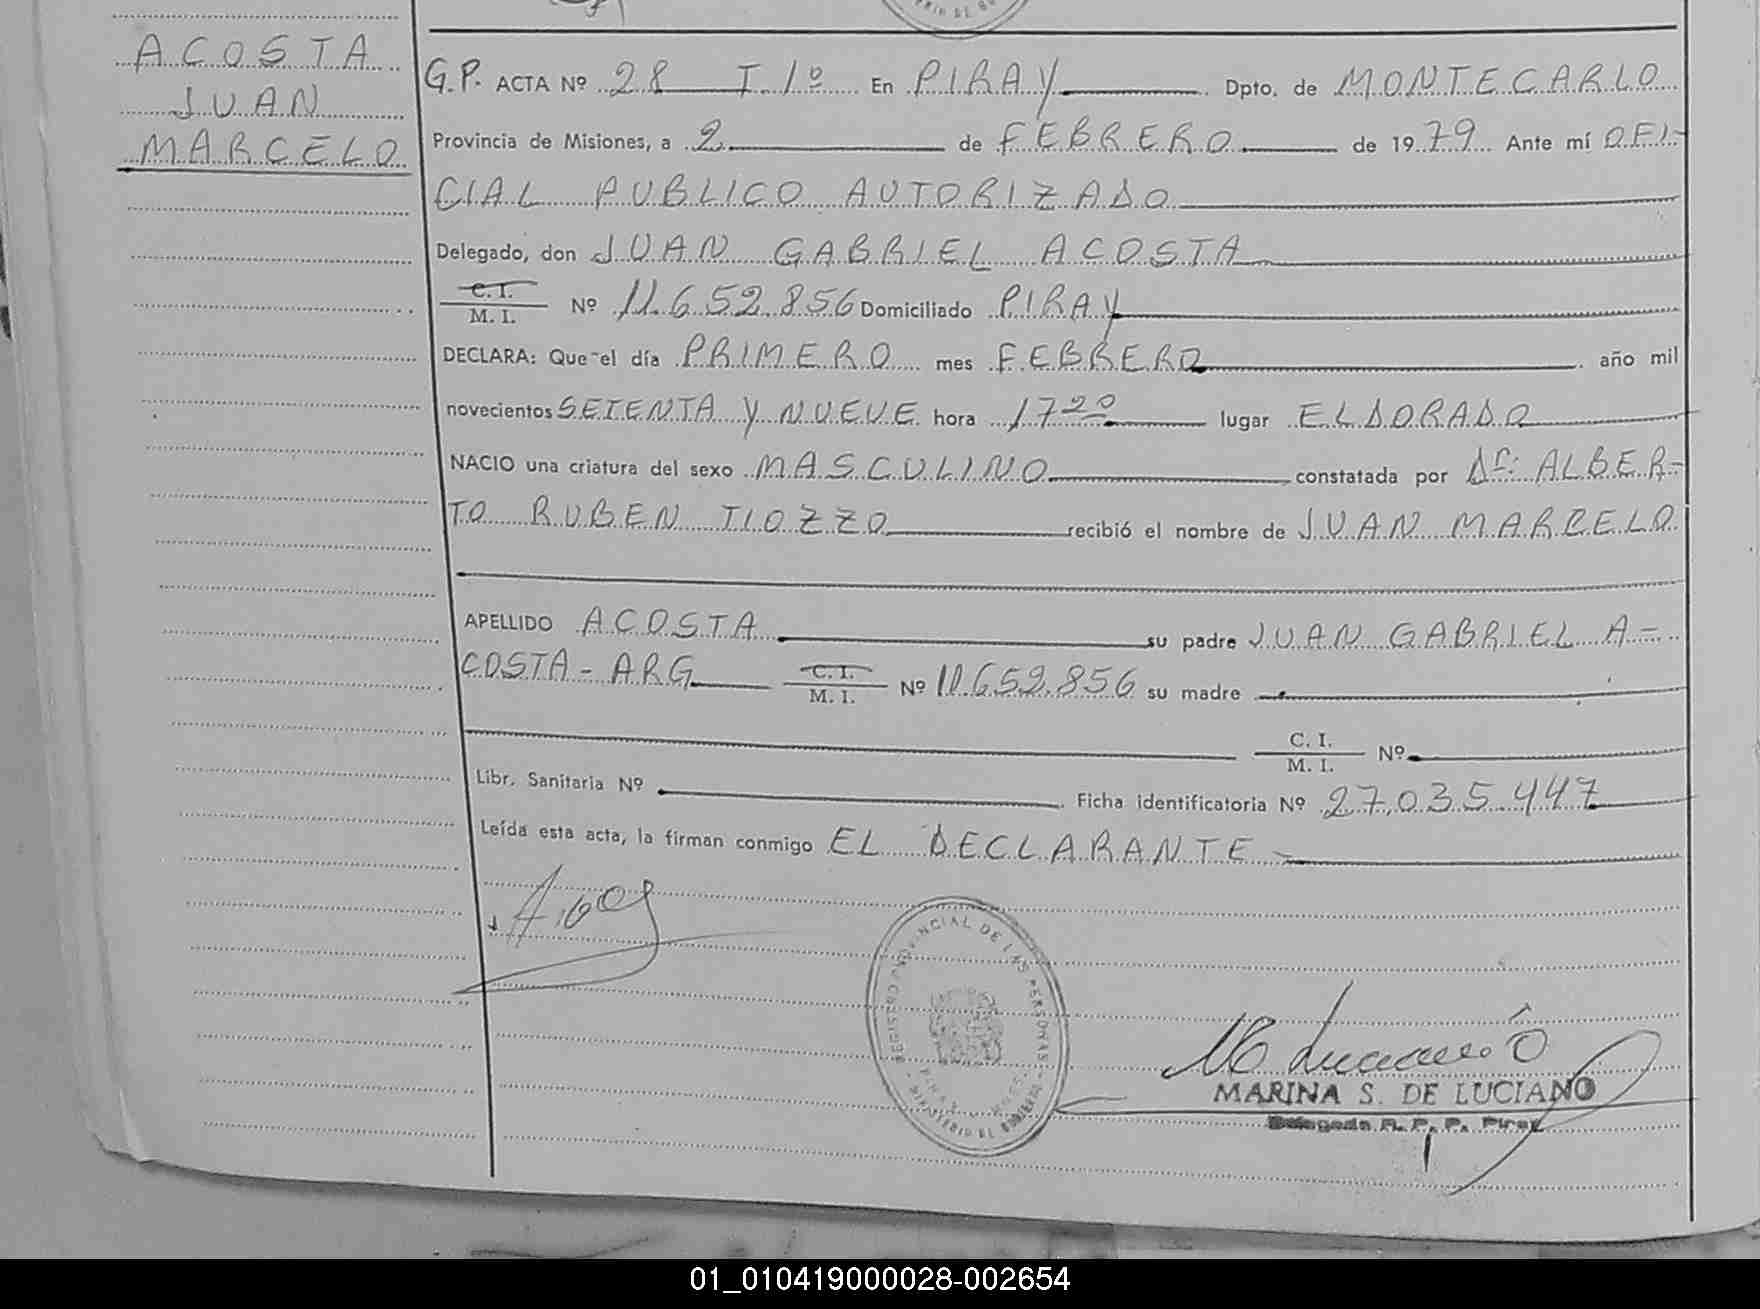 ACOSTA
JUAN
MARCELO
G.P. ACTA Nº 28 T. 1º En PIRAY Dpto. de MONTECARLO
Provincia de Misiones, a 2 de FEBRERO de 1979 Ante mí OFI-
CIAL PUBLICO AUTORIZADO
Delegado, don JUAN GABRIEL ACOSTA
C. I.
M. I. Nº 11.652.856 Domiciliado PIRAY
DECLARA: Que el día PRIMERO mes FEBRERO año mil
novecientos SETENTA Y NUEVE hora 17 20 lugar ELDORADO
NACIO una criatura del sexo MASCULINO constatada por Dr: ALBER-
TO RUBEN TIOZZO recibió el nombre de JUAN MARCELO
APELLIDO ACOSTA su padre JUAN GABRIEL A-
COSTA - ARG C. I.
M. I. Nº 11.652.856 su madre
C. I.
M. I. Nº
Libr. Sanitaria Nº Ficha identificatoria Nº 27.035.447
Leída esta acta, la firman conmigo EL DECLARANTE -
REGISTRO PROVINCIAL DE LAS PERSONAS
PIRAY
MINISTERIO DE GOBIERNO
MARINA S. DE LUCIANO
Delegada R. P. P. Piray
01_010419000028-002654